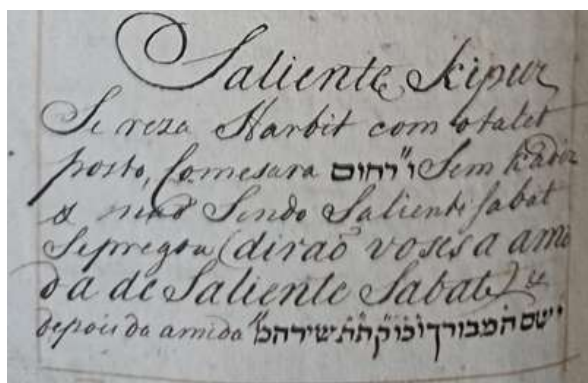 Saliente kipur
Se reza Harbit com o talet
posto, Comesara ו״רחום Sem kadix
& naõ Sendo Saliente Sabat
Sepregoa (diraõ voses a ami
da de Saliente Sabat) e
depois da amida